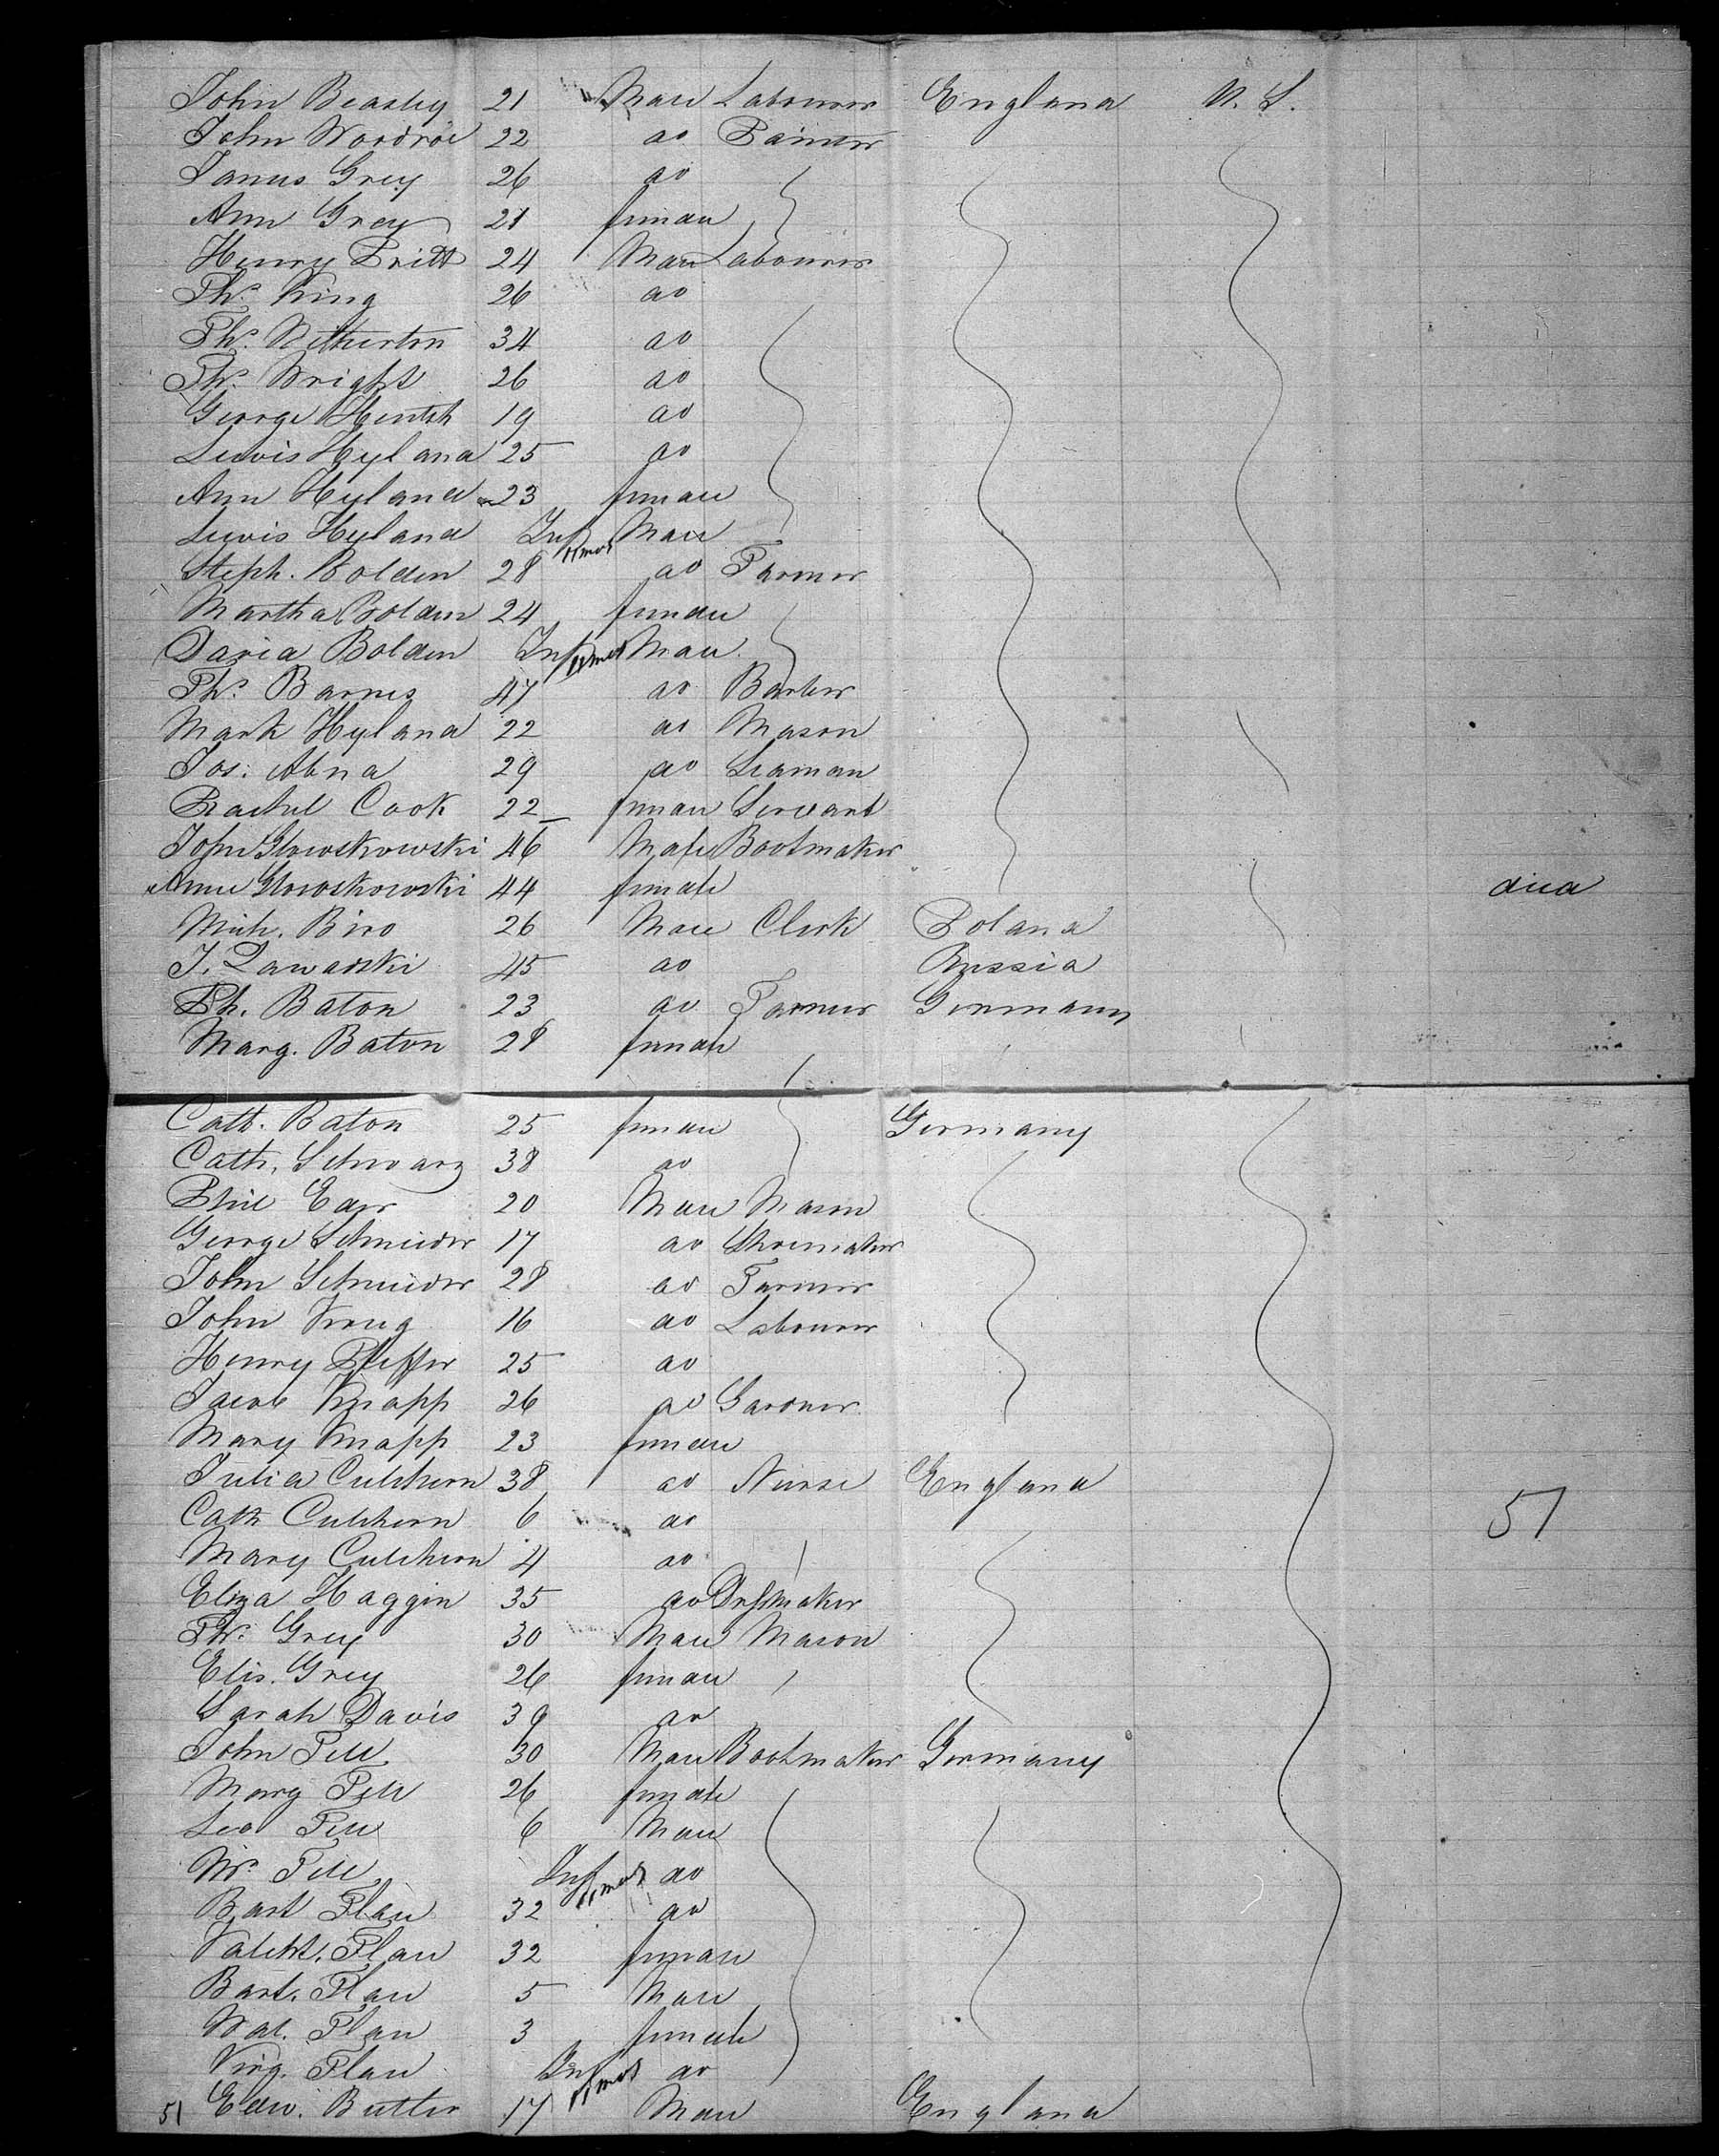 John Beasley 21 Male Labourer England U. S.
John Woodroe 22 do Painter
James Grey 26 do
Ann Grey 21 female
Henry Britt 24 Male Labourer
Ths. King 26 do
Ths. Witherton 34 do
Ths. Wright 26 do
George Hentsh 19 do
Lewis Hyland 25 do
Ann Hyland 23 female
Lewis Hyland Inf 11 mos Male
Steph. Bolden 28 do Farmer
Martha Bolden 24 female
David Bolden Inf 11 mos Male
Ths. Barnes 47 do Barber
Mark Hyland 22 do Mason
Jos. Abna 29 do Seaman
Rachel Cook 22 female Servant
John Glowskowski 46 Male Bootmaker
Anne Glowskowski 44 female died
Mich. Biro 26 Male Clerk Poland
J. Zawadski 45 do Russia
Ph. Baton 23 do Farmer Germany
Marg. Baton 28 female
Cath. Baton 25 female Germany
Cath. Schwarz 38 do
Phil 20 Male Mason
George Schneider 17 do Shoemaker
John Schneider 28 do Farmer
John Krug 16 do Labourer
Henry Pfeffer 25 do
Jacob Knapp 26 do Gardner
Mary Knapp 23 female
Julia Culchern 38 do Nurse England
Cath Culchern 6 do
Mary Culchern 4 do
Eliza Haggin 35 do Dressmaker
Th. Grey 30 Male Mason
Elis. Grey 26 female
Sarah Davis 39 do
John Fell 30 Male Bootmaker Germany
Marg Fell 26 female
Leo Fell 6 Male
Wm. Fell Inf 11 mos do
Bart Flau 32 do
Flau 32 female
Bart. Flau 5 Male
Wal. Flau 3 female
Virg. Flau Inf 11 mos do
51 Edw. Butler 17 Male England
51